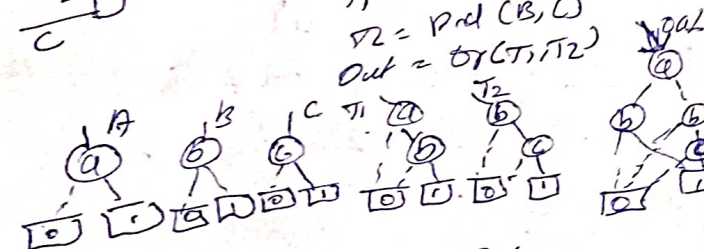 C
T2 = And (B, C)
Out = Or (T1, T2)
Out
A B C T1 T2
a b c a b a
b c b b
c
0 1 0 1 0 1 0 1 0 1 0 1